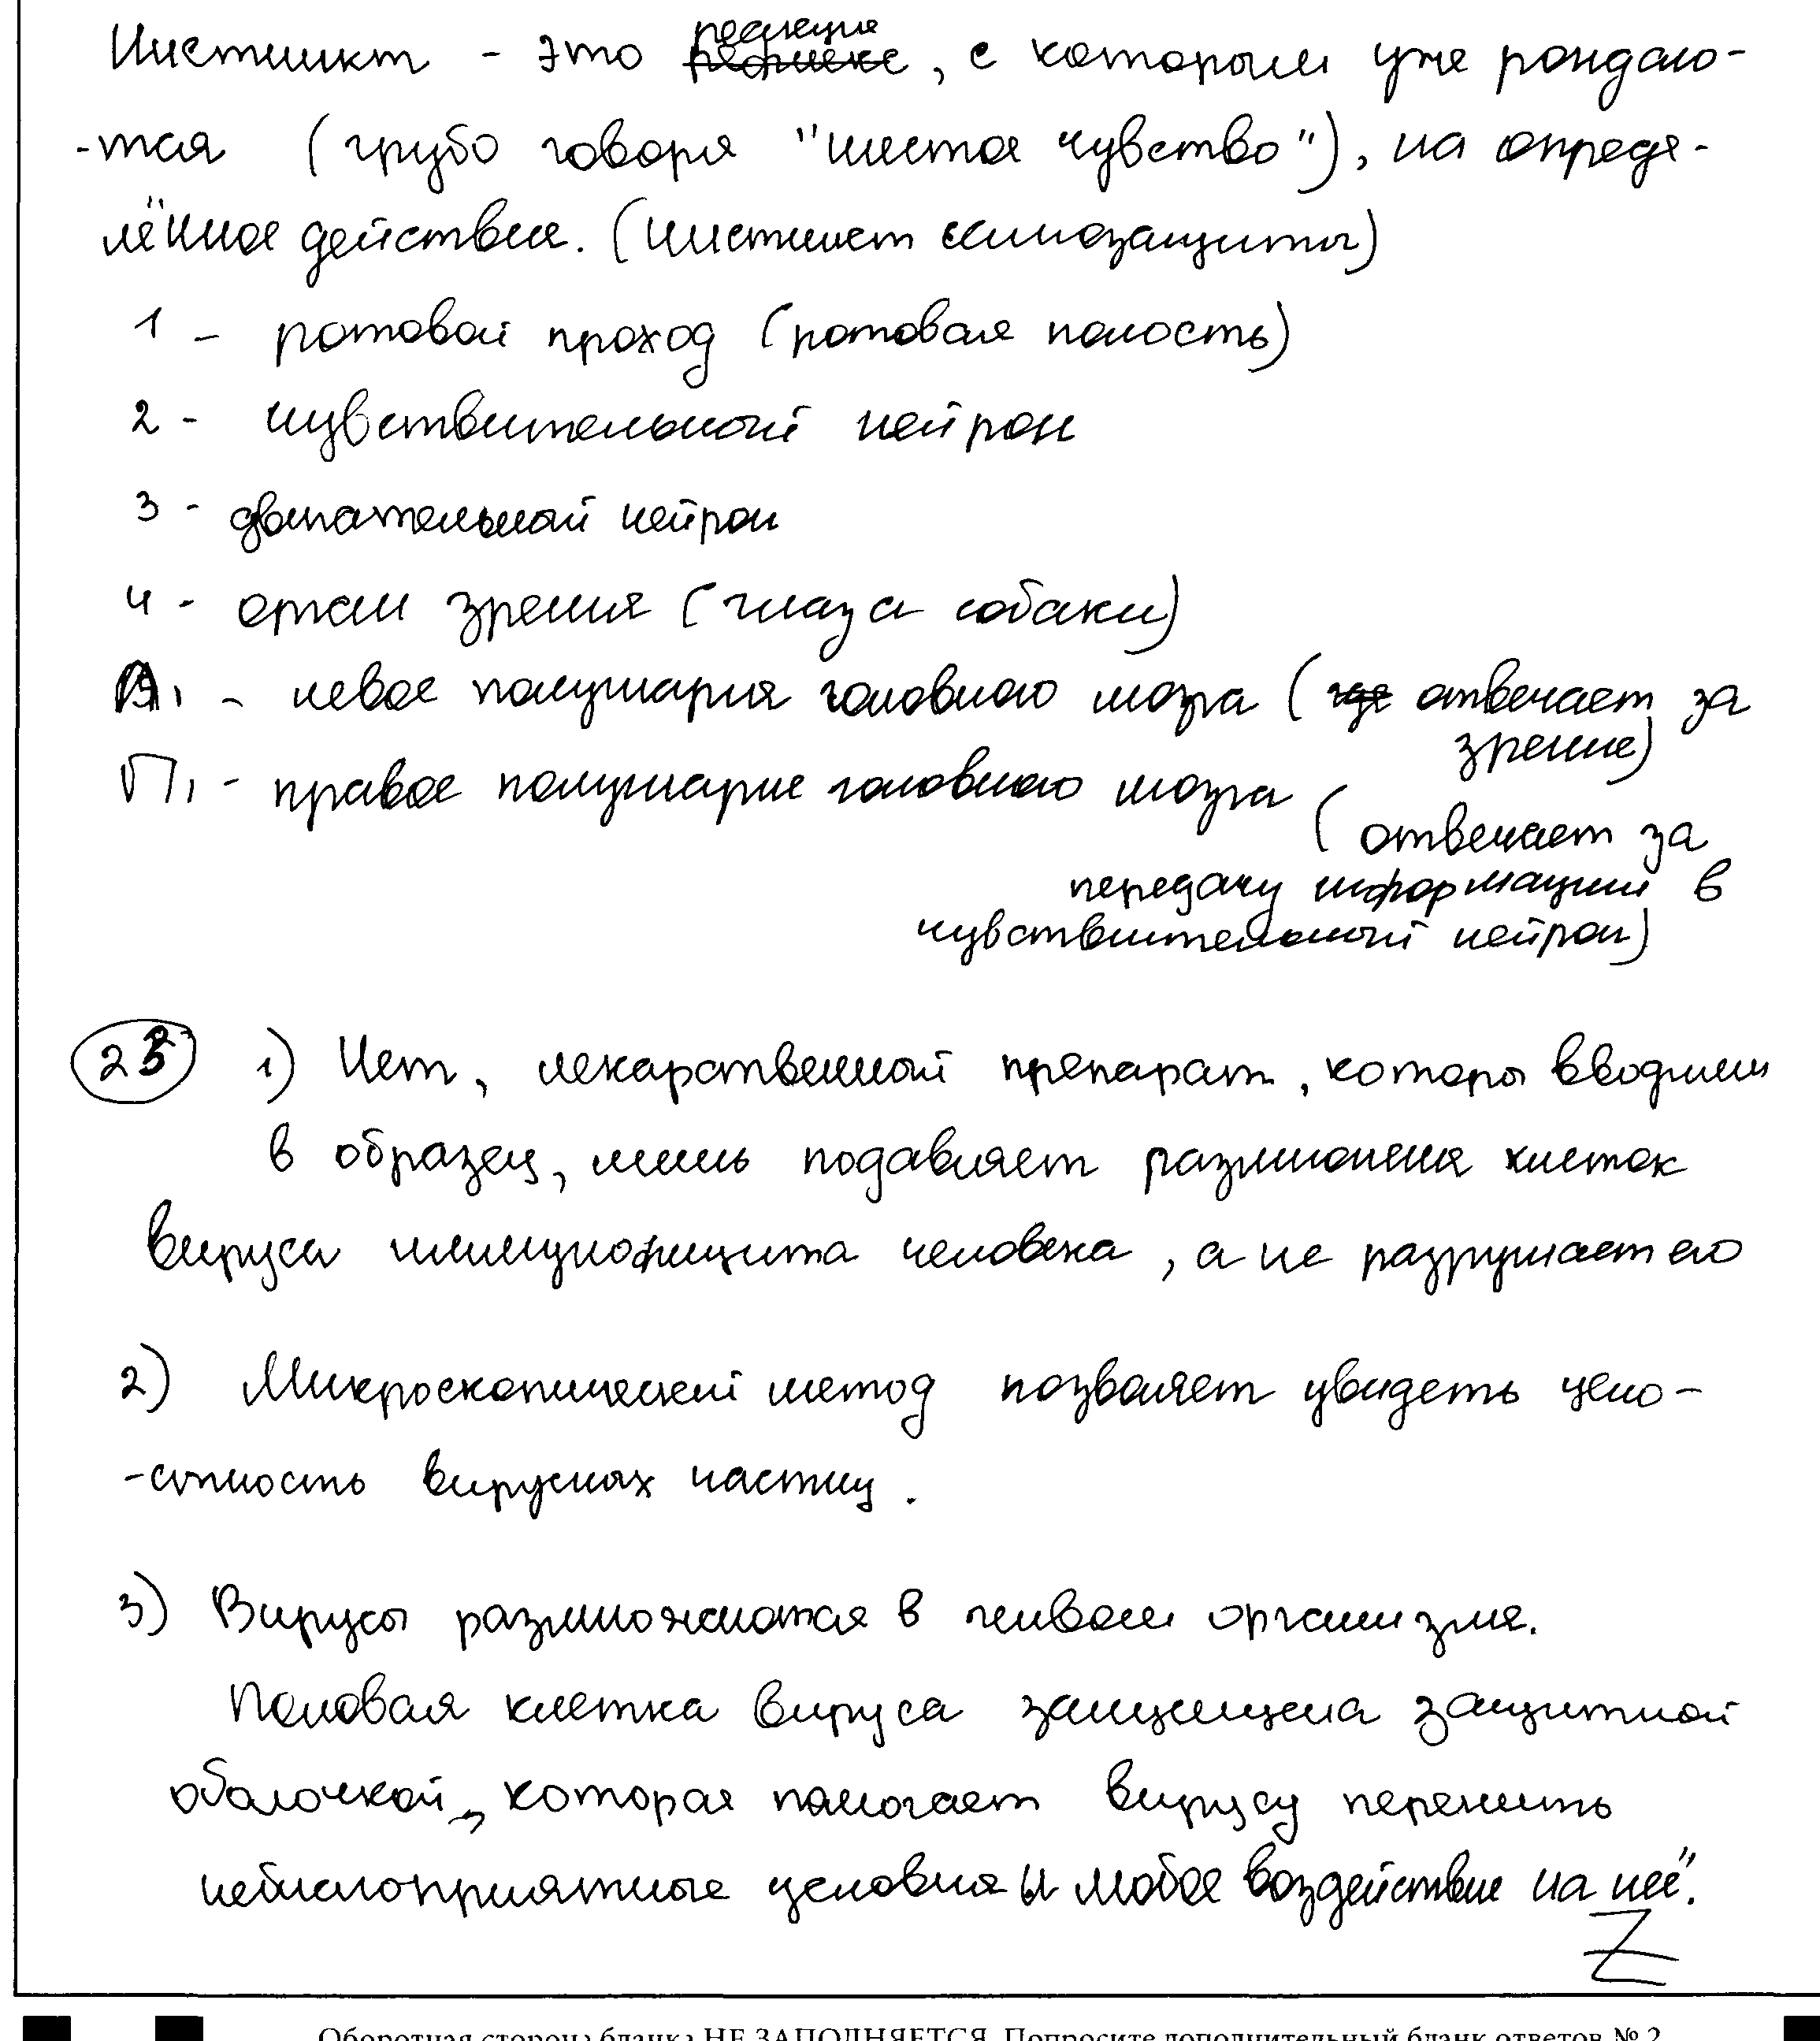 Инстинкт - это реакция рефлекс, с которым уже рождаю-
-тся (грубо говоря "шестое чувство"), на опреде-
лённое действие. (Инстинкт самозащиты)
1 - ротовой проход (ротовая полость)
2 - чувствительный нейрон
3 - двигательный нейрон
4 - орган зрения (глаза собаки)
- левое полушария головного мозга (где отвечает за
зрение)
П₁ - правое полушарие головного мозга
(отвечает за
передачу информации в
чувствительный нейрон)
23 1) Нет, лекарственный препарат, которы вводили
в образец, лишь подавляет размножения клеток
вируса иммунофицита человека, а не разрушает его
2) Микроскопический метод позволяет увидеть цело-
-стность вирусных частиц.
3) Вирусы размножаются в живом организме.
Половая клетка вируса защищена защитной
оболочкой, которая помогает вирусу пережить
неблагоприятные условия и любое воздействие на неё.
Z
Оборотная сторона бланка НЕ ЗАПОЛНЯЕТСЯ. Попросите дополнительный бланк ответов № 2